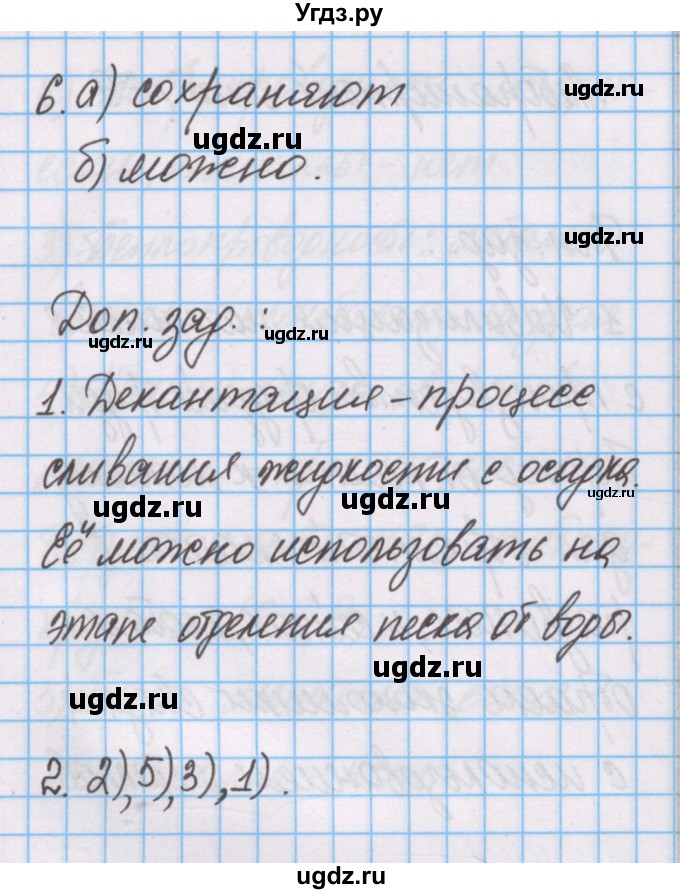 Угдз.ру
6. а) сохраняют
ugdz.ru
ugdz.ru
б) можно.
ugdz.ru
Доп. зад. :
ugdz.ru
ugdz.ru
1. Декантация – процесс
сливания жидкости с осадка.
ugdz.ru
ugdz.ru
ugdz.ru
Её можно использовать на
этапе отделения песка от воды.
ugdz.ru
ugdz.ru
2. 2), 5), 3), 1).
ugdz.ru